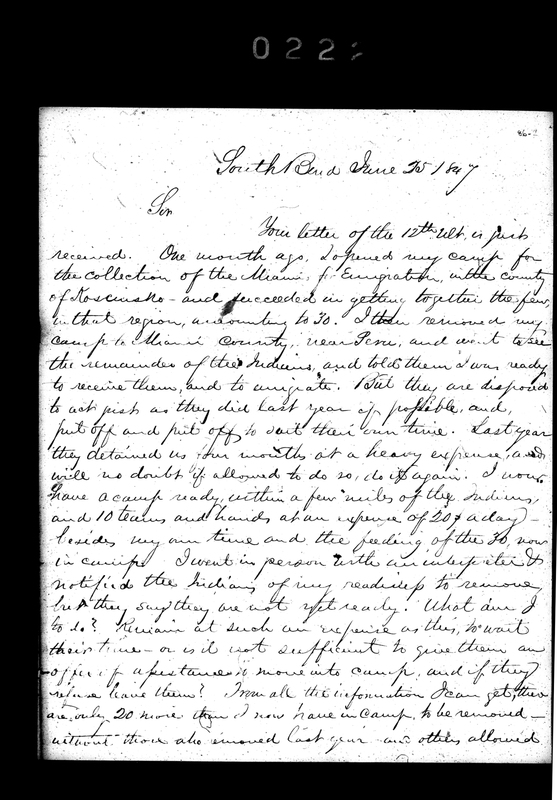 022
86-
South Bend June 25 1847
Sir
Your letter of the 12th ult. is just
received. One month ago, I opened my camp for
the collection of the Miami, for Emigration, in the county
of Kosciusko - and succeeded in getting together the few,
in that region, amounting to 30. I then removed my
camp to Miami County, near Peru, and went to see
the remainder of the Indians, and told them I was ready
to receive them, and to emigrate. But they are disposed
to act just as they did last year if possible, and,
put off and put off to suit their own time. Last year
they detained us four months at a heavy expense, and
will no doubt if allowed to do so, do it again. I now
have a camp ready, within a few miles of the Indians,
and 10 teams and hands at an expense of 20$ a day -
besides my own time and the feeding of the 30, now
in camp. I went in person with an interpreter &
notified the Indians of my readiness to remove
but they say they are not yet ready. What am I
to do? Remain at such an expense as this, to wait
their time - or is it not sufficient to give them an
offer of assistance to move into camp, and if they
refuse leave them? From all the information I can get, there
are, only 20 more than I now have in camp, to be removed -
without those who removed last year and others allowed